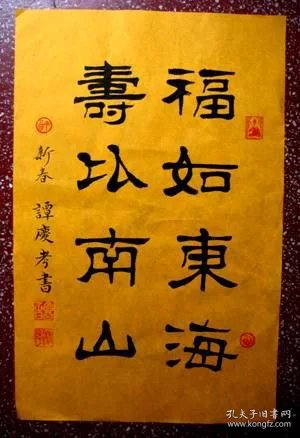 福如東海
壽比南山
新春 譚慶孝書
孔夫子旧书网
www.kongfz.com